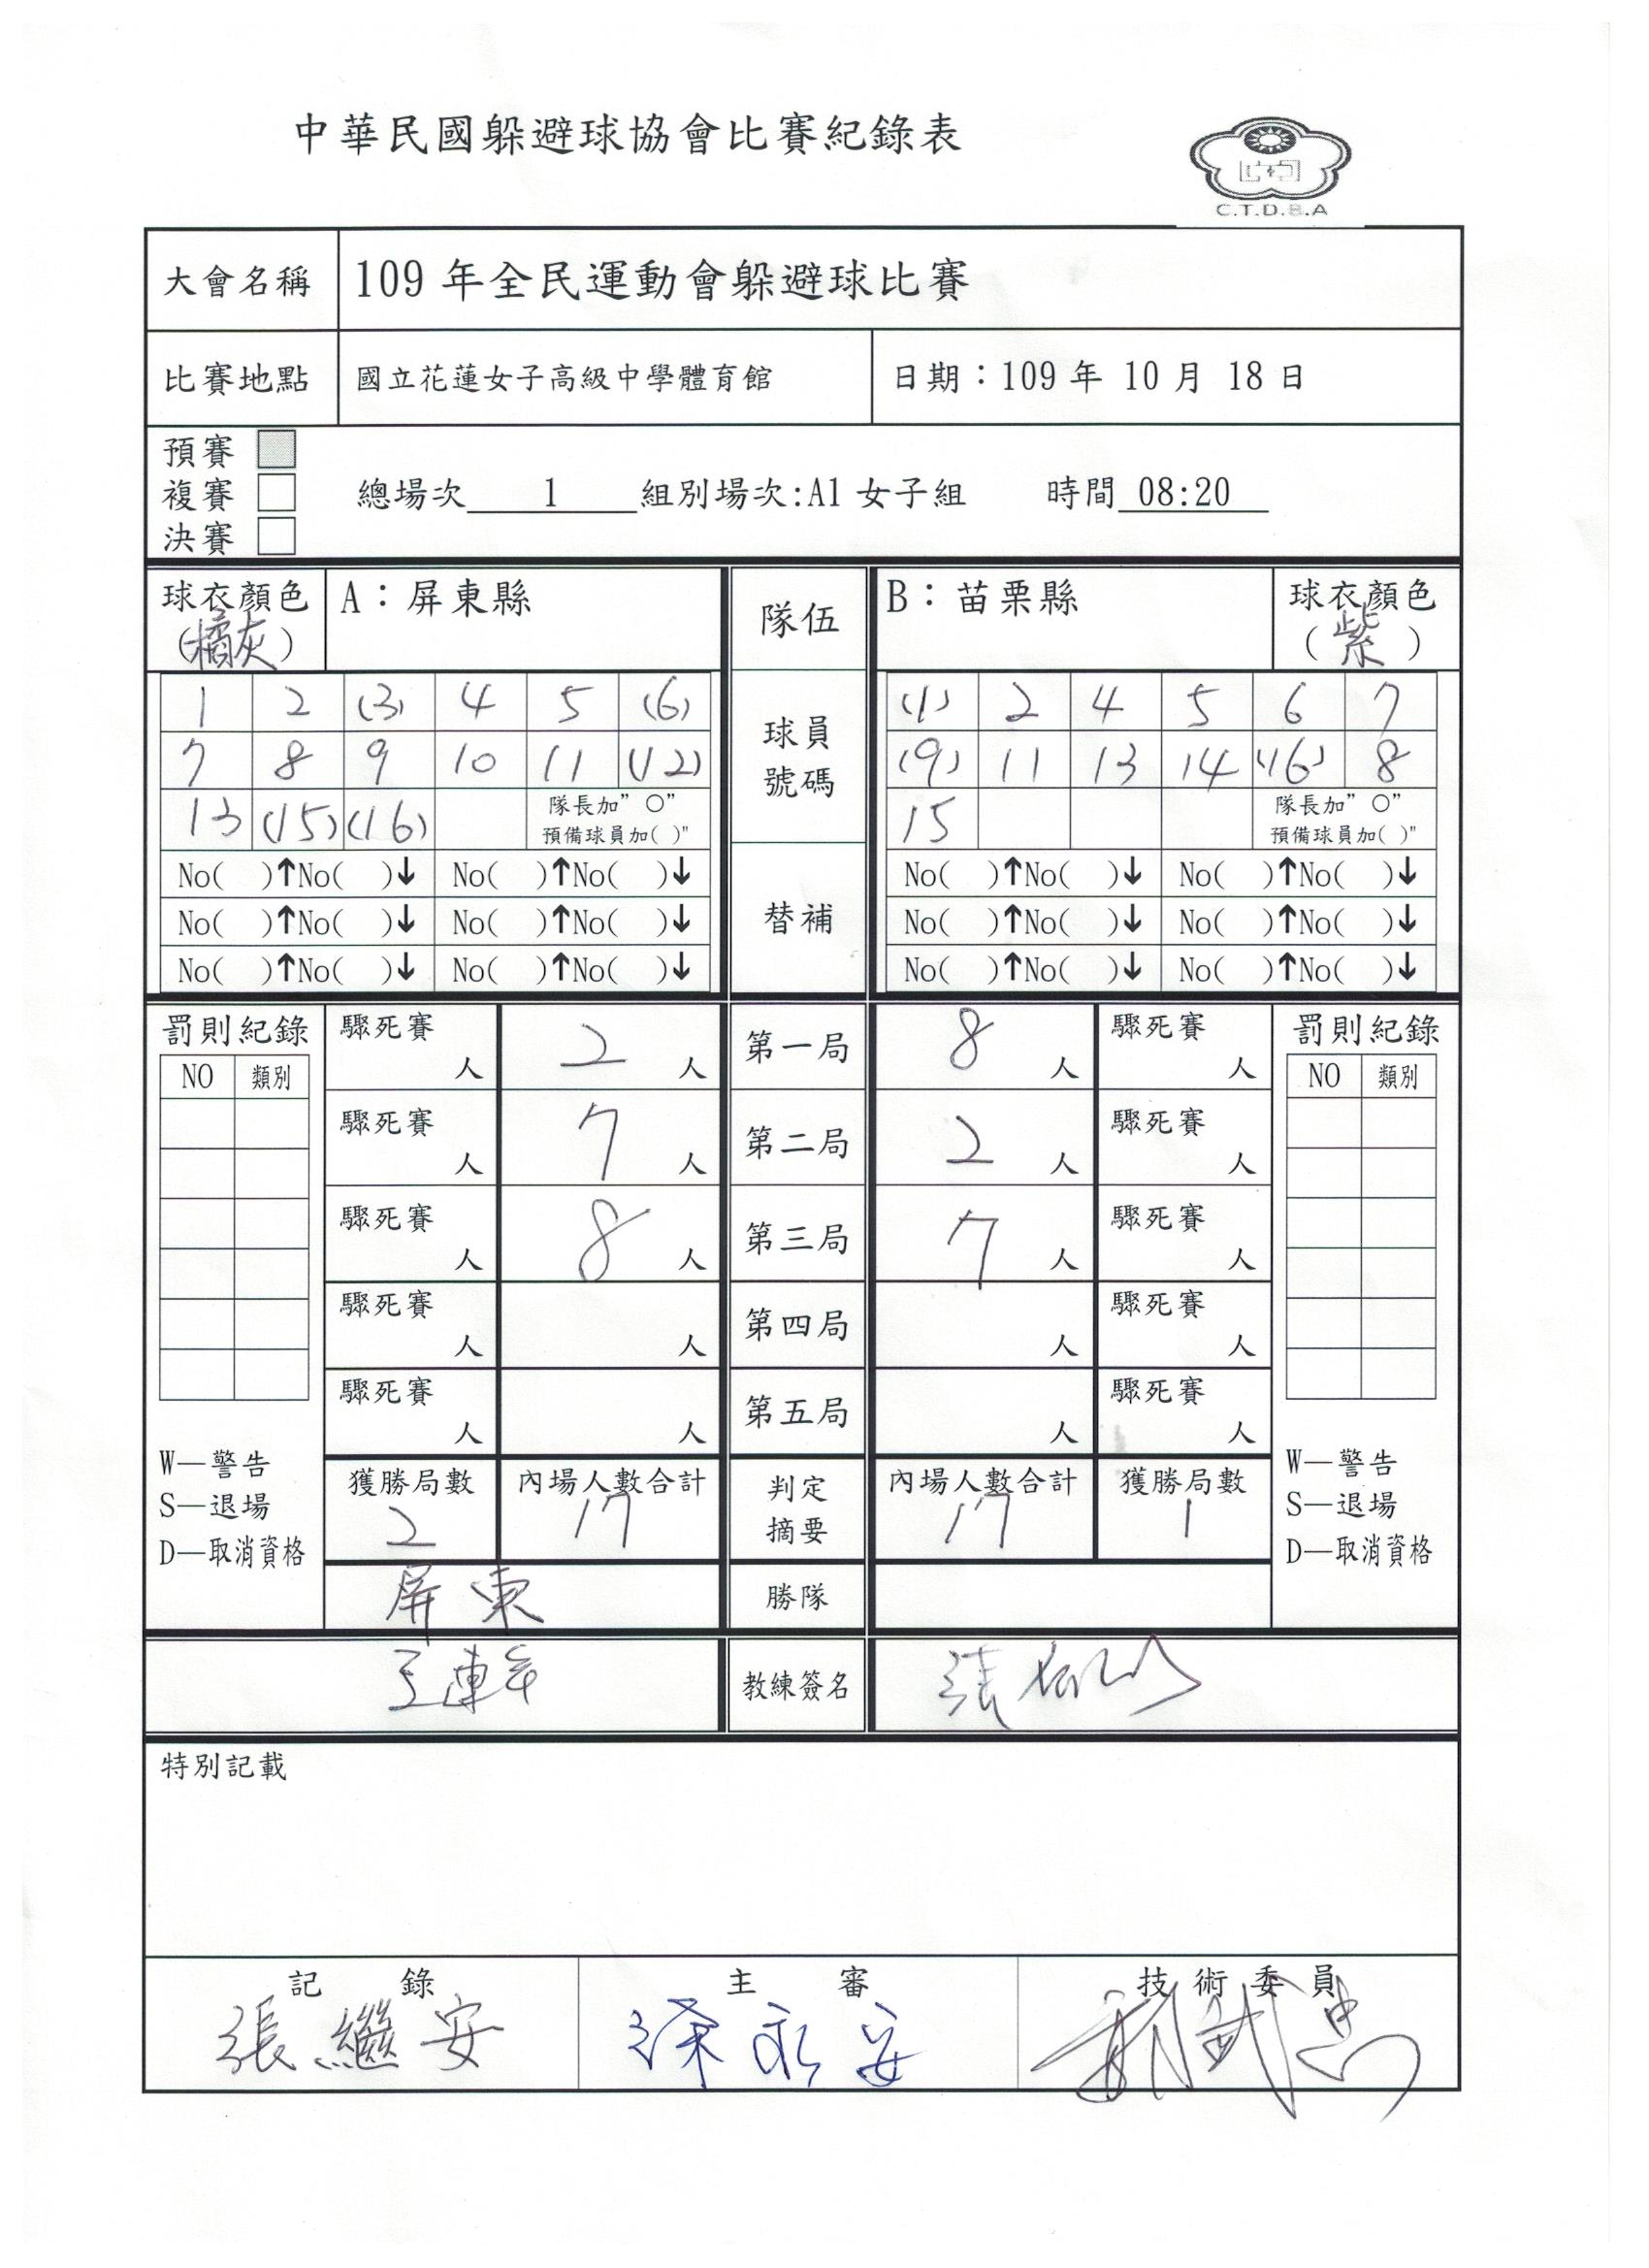 中華民國躲避球協會比賽紀錄表
C.T.D.B.A
大會名稱 109 年全民運動會躲避球比賽
比賽地點 國立花蓮女子高級中學體育館 日期：109 年 10 月 18 日
預賽
複賽 總場次 1 組別場次:A1 女子組 時間 08:20
決賽
球衣顏色 A：屏東縣 隊伍 B：苗栗縣 球衣顏色
(橘灰) (紫)
1 2 (3) 4 5 (6) 球員 (1) 2 4 5 6 7
7 8 9 10 11 (12) 號碼 (9) 11 13 14 (16) 8
13 (15) (16) 隊長加”○” 15 隊長加”○”
預備球員加( )" 預備球員加( )"
No( )↑No( )↓ No( )↑No( )↓ No( )↑No( )↓ No( )↑No( )↓
No( )↑No( )↓ No( )↑No( )↓ 替補 No( )↑No( )↓ No( )↑No( )↓
No( )↑No( )↓ No( )↑No( )↓ No( )↑No( )↓ No( )↑No( )↓
罰則紀錄 驟死賽 人 2 人 第一局 8 人 驟死賽 人 罰則紀錄
NO 類別 NO 類別
驟死賽 人 7 人 第二局 2 人 驟死賽 人
驟死賽 人 8 人 第三局 7 人 驟死賽 人
驟死賽 人 人 第四局 人 驟死賽 人
驟死賽 人 人 第五局 人 驟死賽 人
W—警告 獲勝局數 內場人數合計 判定 內場人數合計 獲勝局數 W—警告
S—退場 2 17 摘要 17 1 S—退場
D—取消資格 D—取消資格
屏東 勝隊
教練簽名
特別記載
記錄 主審 技術委員
張繼安